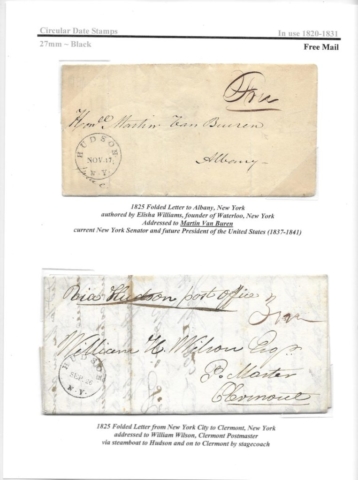 Circular Date Stamps
In use 1820-1831
27mm ~ Black
Free Mail
Free
Honble Martin Van Buren
HUDSON
NOV. 17
N.Y.
Albany
1825 Folded Letter to Albany, New York
authored by Elisha Williams, founder of Waterloo, New York
Addressed to Martin Van Buren
current New York Senator and future President of the United States (1837-1841)
Hudson post Office
Free
William H Wilson Esqr
HUDSON
N.Y.
P. Master
Clermont
1825 Folded Letter from New York City to Clermont, New York
addressed to William Wilson, Clermont Postmaster
via steamboat to Hudson and on to Clermont by stagecoach